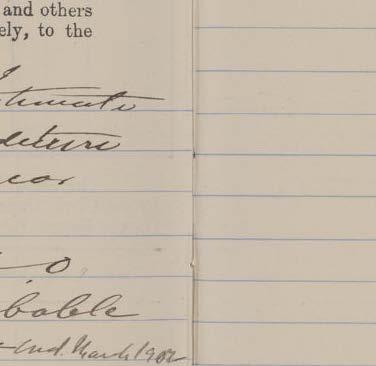 and others
ely, to the
timate
diture
ear
0
bable
End. March 1902